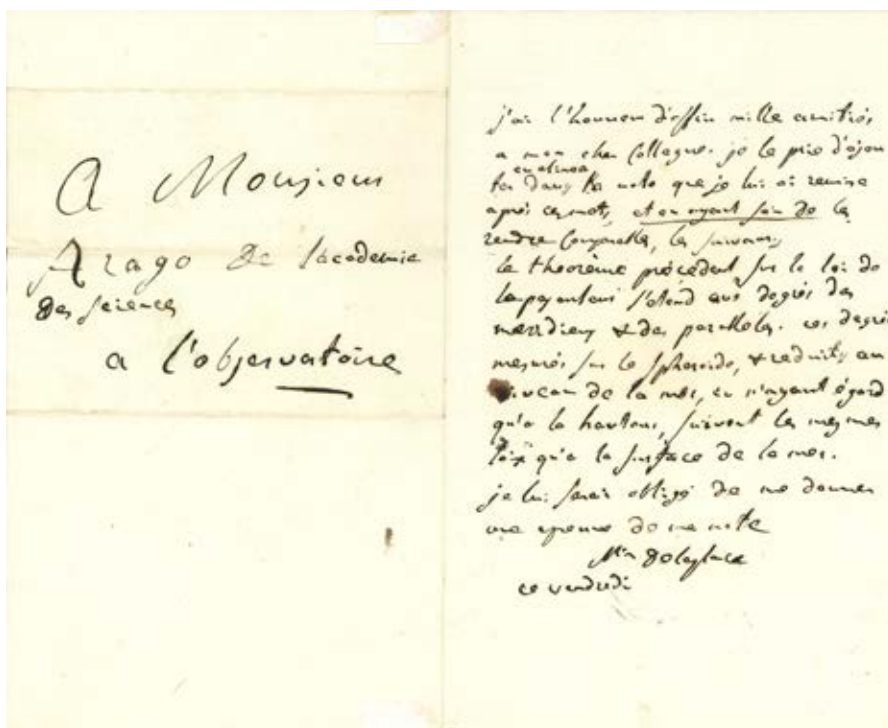 A Monsieur
Arago de lacademie
des sciences
a l'observatoire
j'ai l'honneur d'offrir mille amitiés
a mon cher Collegue. je le prie d'ajou
ter dans la note que je lui ai remise
après ces mots, et en ayant soin de les
rendre comparables, les suivans,
le théorème précédent sur la loi de
la pesanteur s'étend aux degrés des
meridiens & des paralleles. ces degrés
mesurés sur le spheroide, & reduits au
niveau de la mer, en n'ayant égard
qu'a la hauteur, suivent les mesmes
loix qu'a la surface de la mer.
je lui serai obligé de me donner
une epreuve de ma note
Mis de laplace
ce vendredi